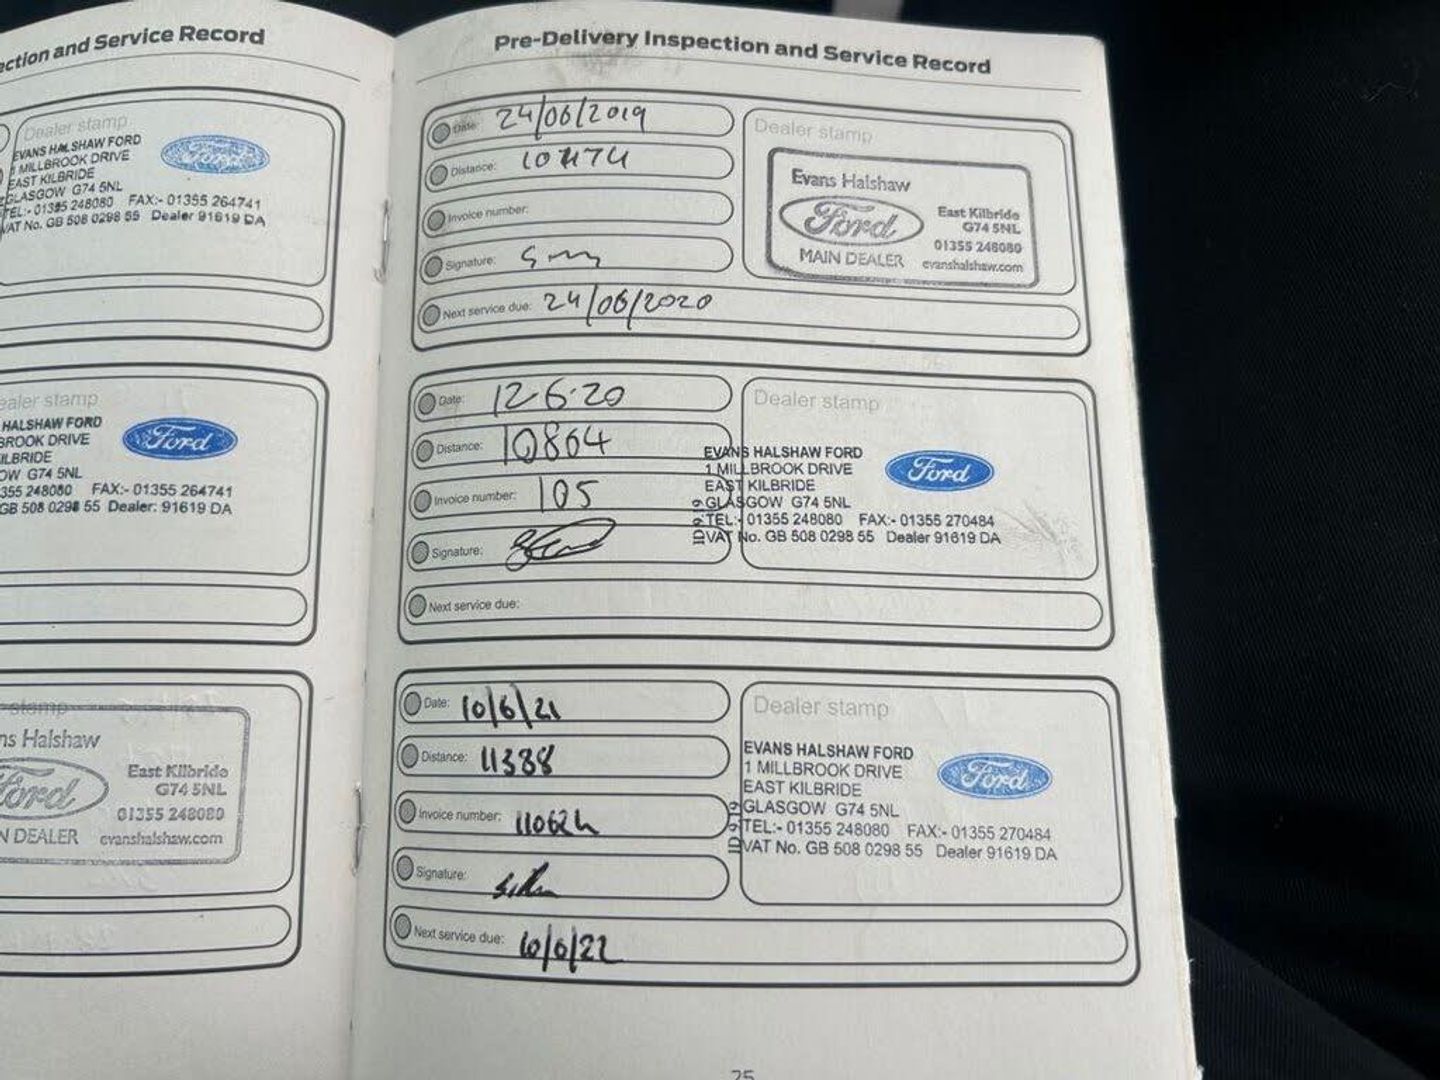 ection and Service Record
Dealer stamp
EVANS HALSHAW FORD
1 MILLBROOK DRIVE
EAST KILBRIDE
GLASGOW G74 5NL
TEL:- 01355 248080 FAX:- 01355 264741
VAT No. GB 508 0298 55 Dealer 91619 DA
Ford
ealer stamp
HALSHAW FORD
BROOK DRIVE
ILBRIDE
OW G74 5NL
355 248080 FAX:- 01355 264741
GB 508 0298 55 Dealer: 91619 DA
Ford
stamp
ns Halshaw
Ford
East Kilbride
G74 5NL
01355 248080
N DEALER evanshalshaw.com
Pre-Delivery Inspection and Service Record
Date: 24/06/2019
Distance:
Invoice number:
Signature:
Next service due: 24/06/2020
Dealer stamp
Evans Halshaw
Ford
East Kilbride
G74 5NL
01355 248080
MAIN DEALER evanshalshaw.com
Date: 12·6·20
Distance: 10864
Invoice number: 105
Signature:
Next service due:
Dealer stamp
EVANS HALSHAW FORD
1 MILLBROOK DRIVE
EAST KILBRIDE
GLASGOW G74 5NL
TEL:- 01355 248080 FAX:- 01355 270484
VAT No. GB 508 0298 55 Dealer 91619 DA
Ford
Date: 10/6/21
Distance: 11388
Invoice number:
Signature:
Next service due: 10/6/22
Dealer stamp
EVANS HALSHAW FORD
1 MILLBROOK DRIVE
EAST KILBRIDE
GLASGOW G74 5NL
TEL:- 01355 248080 FAX:- 01355 270484
VAT No. GB 508 0298 55 Dealer 91619 DA
Ford
75